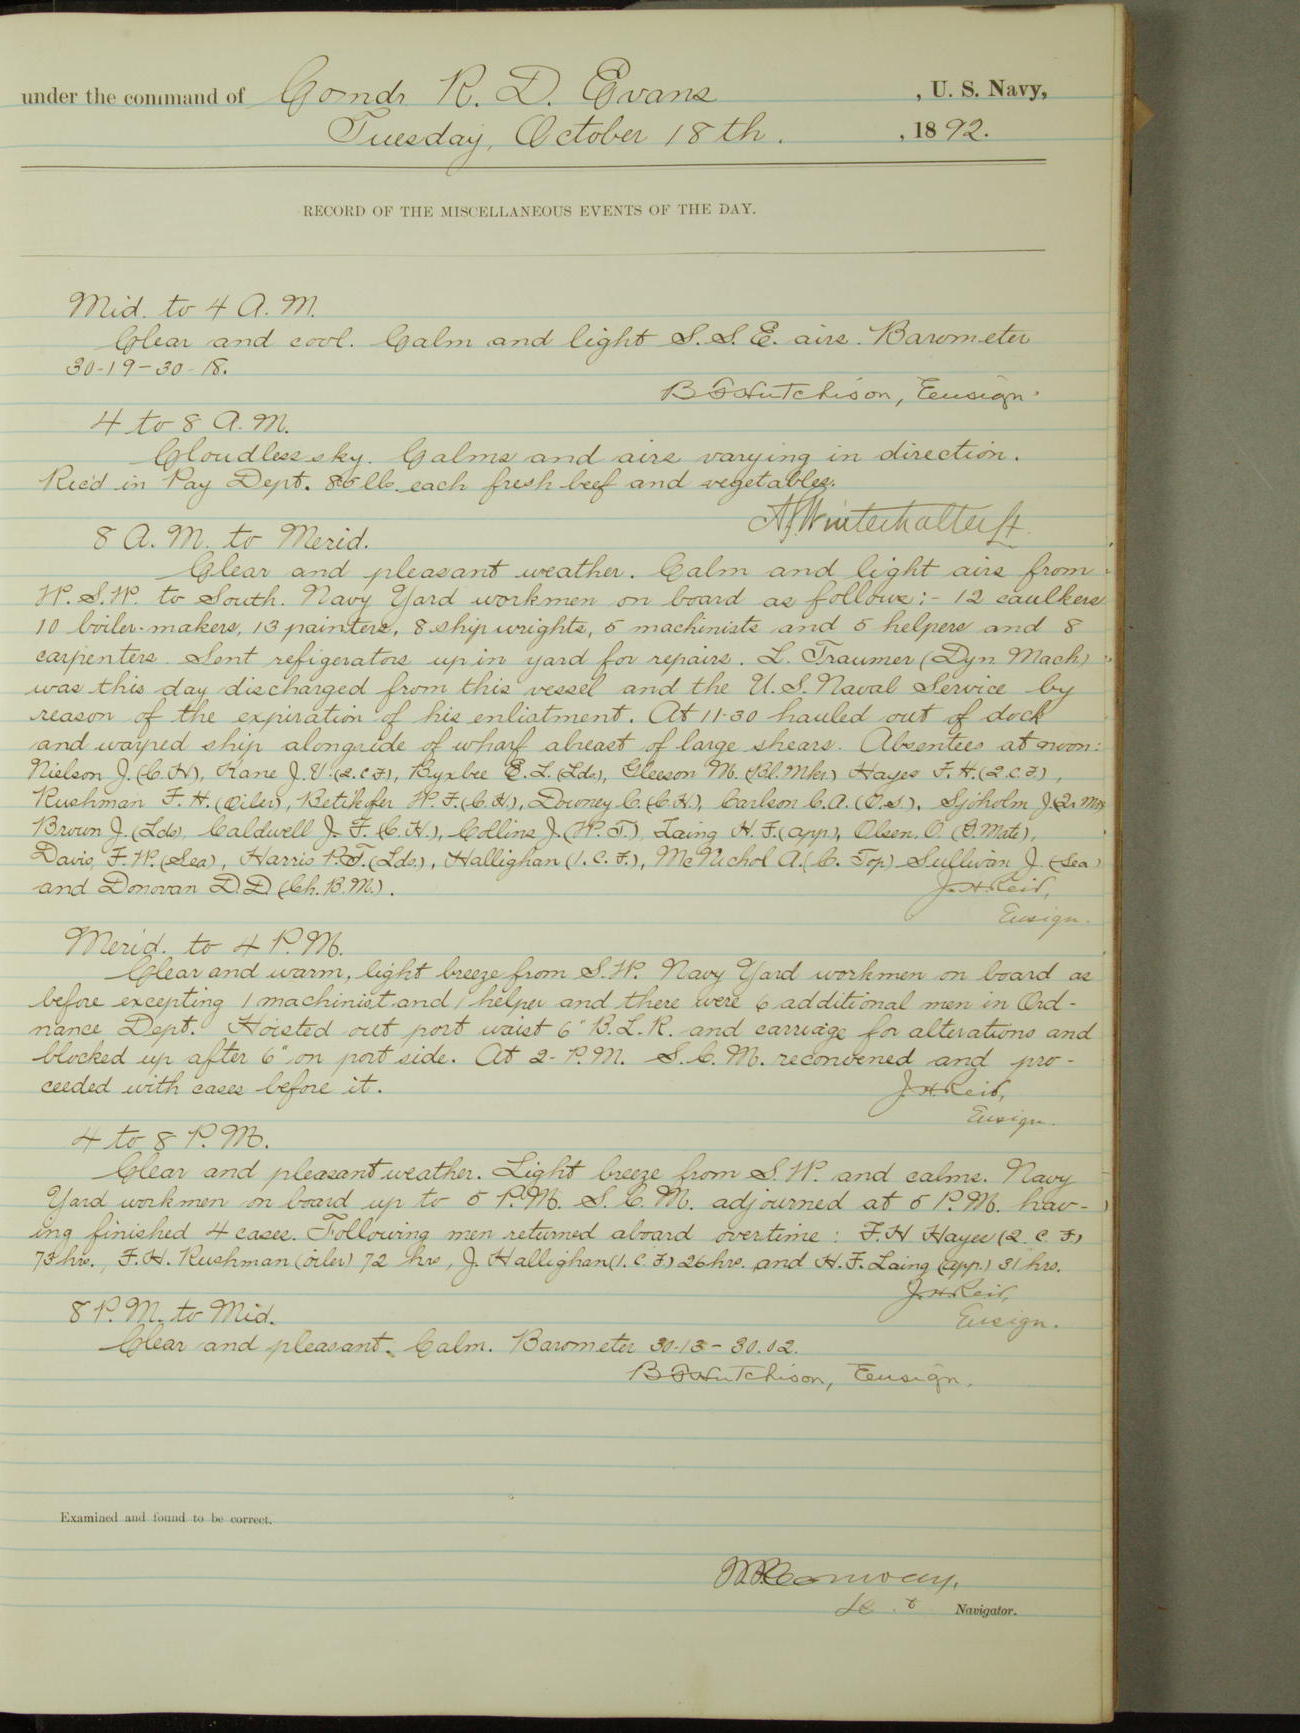 under the command of Comdr R. D. Evans, U. S. Navy,
Tuesday, October 18th. , 1892.
RECORD OF THE MISCELLANEOUS EVENTS OF THE DAY.
Mid. to 4 A. M.
Clear and cool. Calm and light S. S. E. airs. Barometer
30-19-30-18.
B F Hutchison, Ensign.
4 to 8 A. M.
Cloudless sky. Calms and airs varying in direction.
Rec'd in Pay Dept. 86 lb each fresh beef and vegetables.
A G Winterhalter Lt.
8 A. M. to Merid.
Clear and pleasant weather. Calm and light airs from
W. S. W. to South. Navy Yard workmen on board as follows:- 12 caulkers
10 boiler-makers, 13 painters, 8 shipwrights, 5 machinists and 5 helpers and 8
carpenters. Sent refigerators up in yard for repairs. L. Traumer (Dyn Mach)
was this day discharged from this vessel and the U. S. Naval Service by
reason of the expiration of his enlistment. At 11-30 hauled out of dock
and warped ship alongside of wharf abreast of large shears. Absentees at noon:
Nielson J. (C. H), Kane J. V. (2. C. F), Byxbee E. L. (Lds), Gleeson M. (Bl. Mkr) Hayes F. H. (2. C. F),
Rushman F. H. (Oiler), Betikofer W. F. (C. H.), Downey C. (C. H.), Carlson C. A. (O. S.), Sjoholm J.
Brown J. (Lds), Caldwell J. F. (C. H.), Collins J. (W. T.) Laing H. F. (app), Olsen, O. (G. Mate),
Davis, F. W. (Sea), Harris P. T. (Lds.), Hallighan (1. C. F.), McNichol A. (C. Top) Sullivan J. (Sea)
and Donovan D. D (Ch. B. M.).
J. H. Reid,
Ensign.
Merid. to 4 P. M.
Clear and warm, light breeze from S. W. Navy Yard workmen on board as
before excepting 1 machinist and 1 helper and there were 6 additional men in Ord-
nance Dept. Hoisted out port waist 6" B. L. R. and carriage for alterations and
blocked up after 6" on port side. At 2- P. M. S. C. M. reconvened and pro-
ceeded with cases before it.
J. H. Reid,
Ensign.
4 to 8 P. M.
Clear and pleasant weather. Light breeze from S. W. and calms. Navy
Yard workmen on board up to 5 P. M. S. C. M. adjourned at 5 P. M. hav-
ing finished 4 cases. Following men returned aboard overtime: F. H Hayes (2. C. F)
73 hrs., F. H. Rushman (oiler) 72 hrs, J. Hallighan (1. C. F.) 26 hrs. and H. F. Laing (app.) 31 hrs.
J. H. Reid,
Ensign.
8 P. M. to Mid.
Clear and pleasant. Calm. Barometer 30-13 - 30.02.
B F Hutchison, Ensign.
Examined and found to be correct.
Conway,
Navigator.